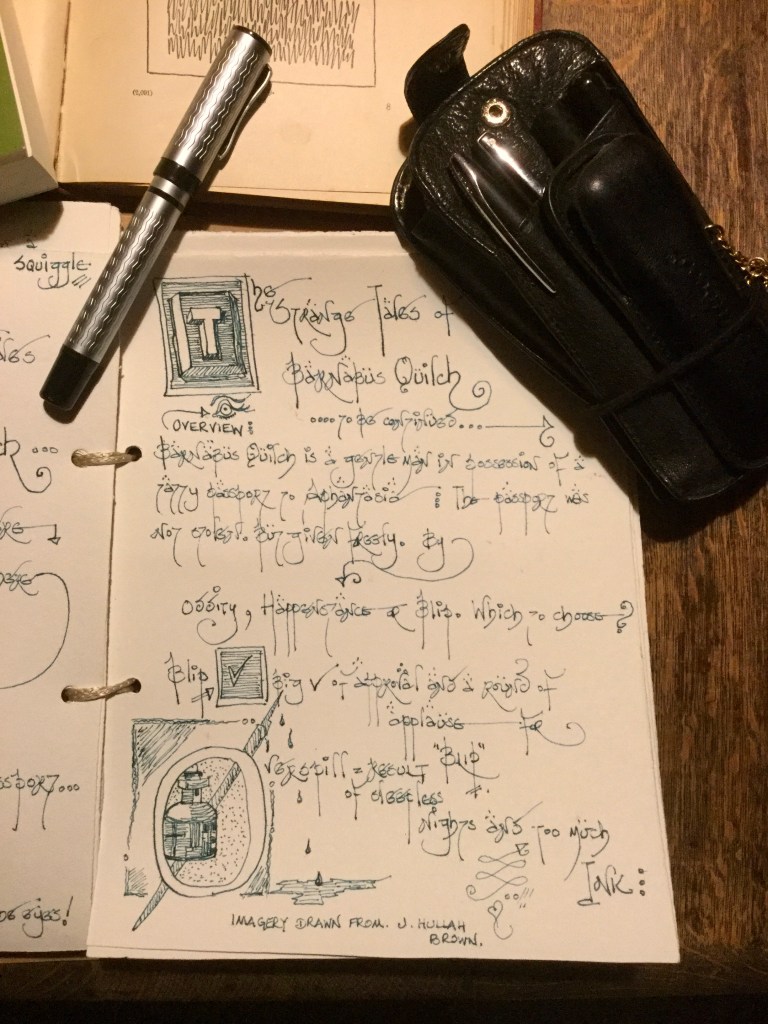 squiggle
T he Strange Tales of
Barnabus Quilch
....to be continued...
OVERVIEW:
Barnabus Quilch is a gentleman in possession of a
tatty passport to Aphantasia : The passport was
not stolen. But given freely. By
Oddity, Happenstance or Blip. Which to choose?
Blip ✓ Big ✓ of approval and a round of
applause for
Verspill = result "Blip".
of sleepless
Nights and too much
Ink:
IMAGERY DRAWN FROM. J. HULLAH
BROWN.